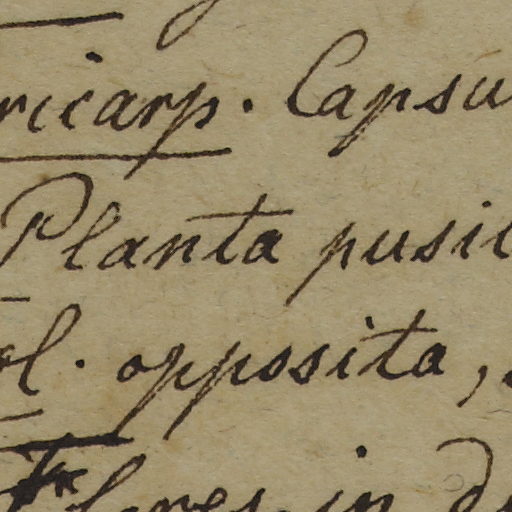 ricarp. Capsu
Planta pusil
ol. opposita,
Flores in d